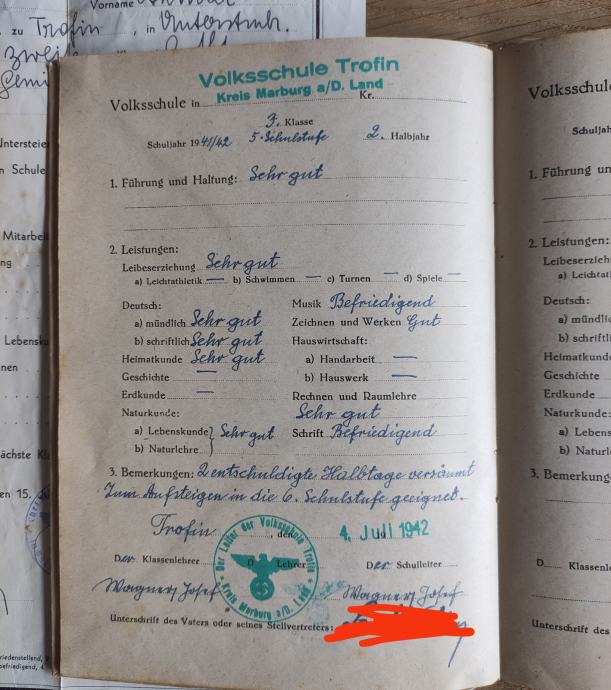 Vorname
zu Trofin, in Unterstuk.
zweite
Untersteie
n Schule
Mitarbeit
ng
Lebensku
nen
ächste Kl
en 15.
riedenstellend,
befriedigend, 4
Volksschule Trofin
Kreis Marburg a/D. Land
Volksschule in Kr.
3. Klasse
Schuljahr 1941/42 5. Schulstufe 2. Halbjahr
1. Führung und Haltung: Sehr gut
2. Leistungen:
Leibeserziehung Sehr gut
a) Leichtathletik — b) Schwimmen — c) Turnen — d) Spiele —
Deutsch: Musik Befriedigend
a) mündlich Sehr gut Zeichnen und Werken Gut
b) schriftlich Sehr gut Hauswirtschaft:
Heimatkunde Sehr gut a) Handarbeit —
Geschichte — b) Hauswerk —
Erdkunde — Rechnen und Raumlehre
Naturkunde: Sehr gut
a) Lebenskunde Sehr gut Schrift Befriedigend
b) Naturlehre
3. Bemerkungen: 2 entschuldigte Halbtage versäumt
Zum Aufsteigen in die 6. Schulstufe geeignet.
Trofin, den 4. Juli 1942
Der Klassenlehrer D Lehrer Der Schulleiter
Der Leiter der Volksschule Trofin
Kreis Marburg a/D. Land
Wagner Josef Wagner Josef
Unterschrift des Vaters oder seines Stellvertreters:
Volksschule
Schuljahr
1. Führung un
2. Leistungen:
Leibeserziehu
a) Leichtat
Deutsch:
a) mündlic
b) schriftl
Heimatkunde
Geschichte
Erdkunde
Naturkunde:
a) Lebens
b) Naturl
3. Bemerkung
D Klassenle
Unterschrift des